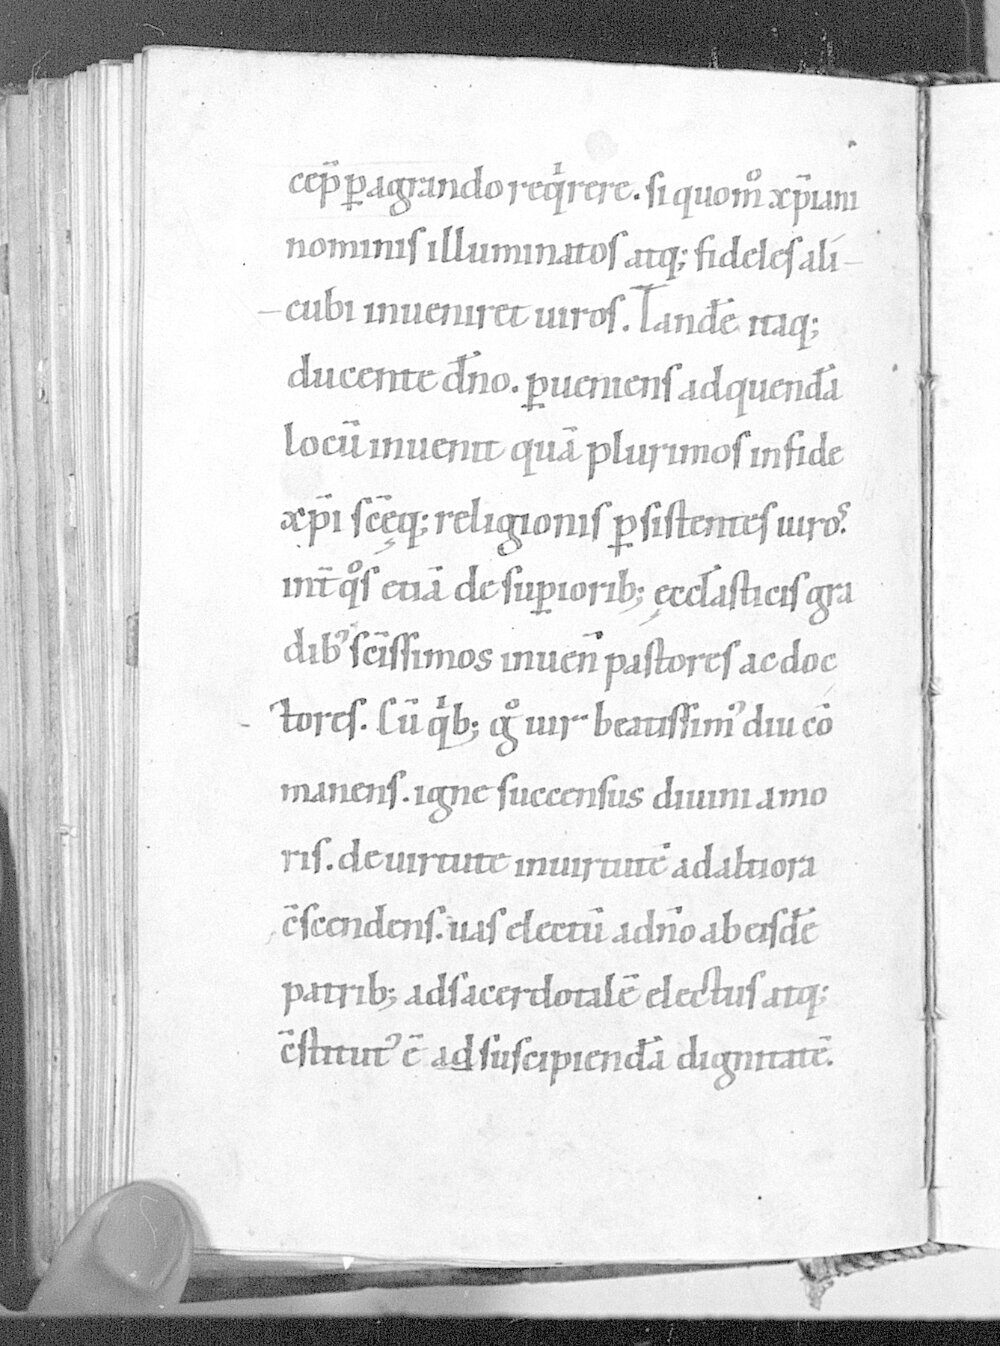 cep̄ ꝑagrando reqͥrere. si quom̊ xp̄iani
nominis illuminatos atq; fideles ali-
cubi inueniret uiros. Tandē itaq;
ducente dn̄o. ꝑueniens ad quendā
locū inuenit quā plurimos in fide
xp̄i sc̄ęq; religionis ꝑsistentes uiros.
int̄ qͦs etiā de suꝑiorib; ęccl̄asticis gra
dibꝰ sc̄issimos inuen̄ pastores ac doc
tores. Cū qͥb; gͦ uir beatissimꝰ diu cō
manens. igne succensus diuini amo
ris. de uirtute in uirtutē ad altiora
c̄scendens. uas electū ad n̄o ab eisdē
patrib; ad sacerdotalē electus atq;
c̄stitutꝰ ē ad suscipiendā dignitatē.